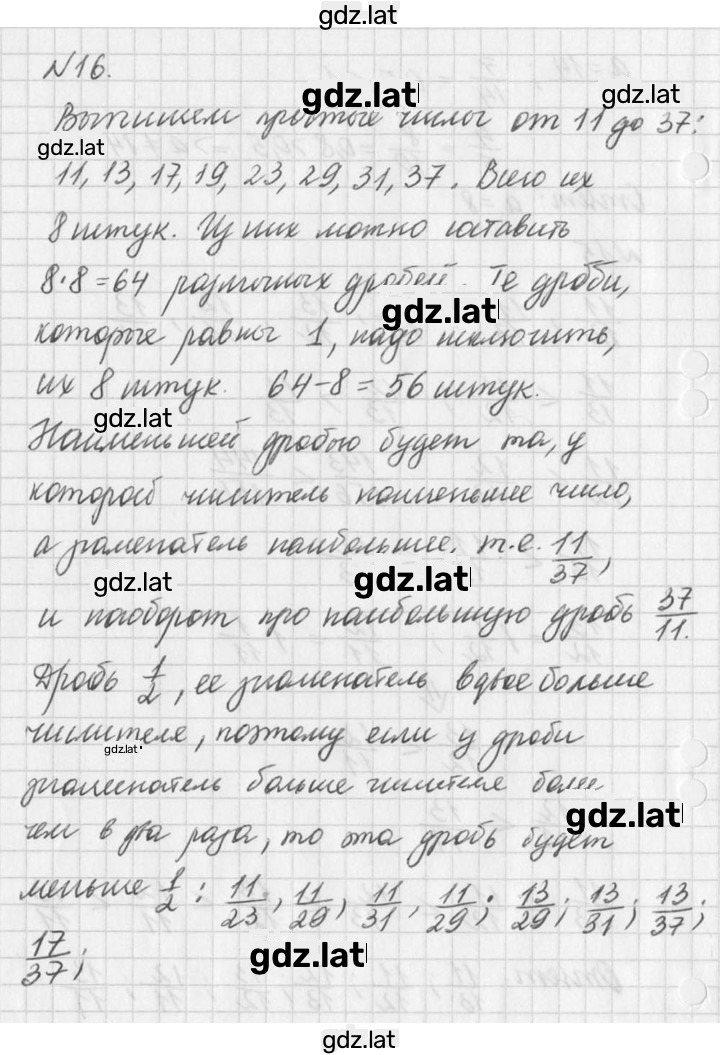 gdz.lat
№16.
gdz.lat
gdz.lat
Выпишем простые числа от 11 до 37:
gdz.lat
11, 13, 17, 19, 23, 29, 31, 37. Всего их
8 штук. Из них можно составить
8·8=64 различных дробей. Те дроби,
gdz.lat
которые равны 1, надо исключить,
их 8 штук. 64-8=56 штук.
gdz.lat
Наименьшей дробью будет та, у
которой числитель наименьшее число,
а знаменатель наибольшее. т.е. 11/37,
gdz.lat
gdz.lat
и наоборот про наибольшую дробь 37/11.
Дробь 1/2, ее знаменатель вдвое больше
числителя, поэтому если у дроби
gdz.lat
знаменатель больше числителя более
gdz.lat
чем в два раза, то эта дробь будет
меньше 1/2: 11/23, 11/29, 11/31, 11/29; 13/29; 13/31; 13/37;
17/37;
gdz.lat
gdz.lat